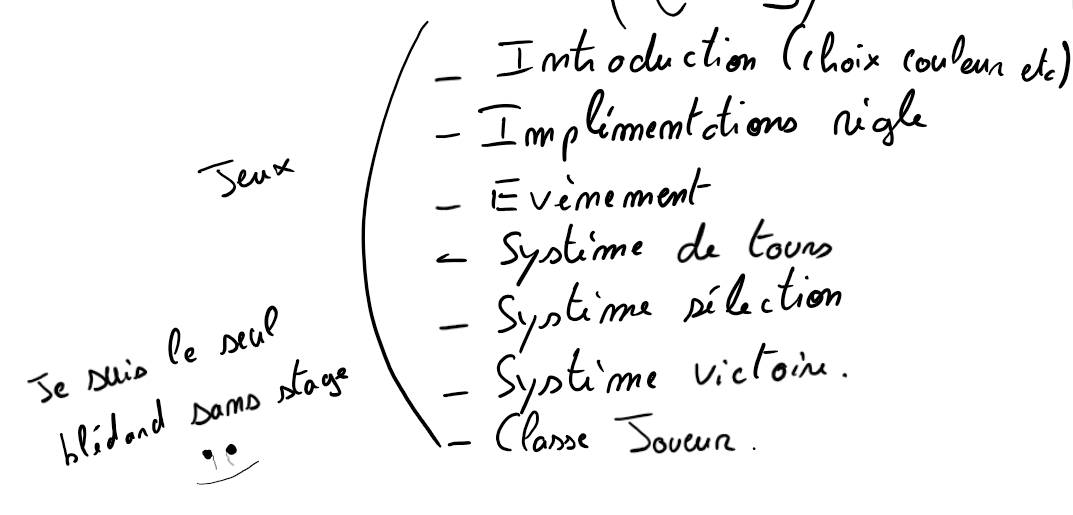 - Introduction (choix couleur etc)
- Implémentations règle
Jeux
- Evènement
- Système de tours
- Système sélection
- Système victoire.
- Classe Joueur.
Je suis le seul
blédard sans stage